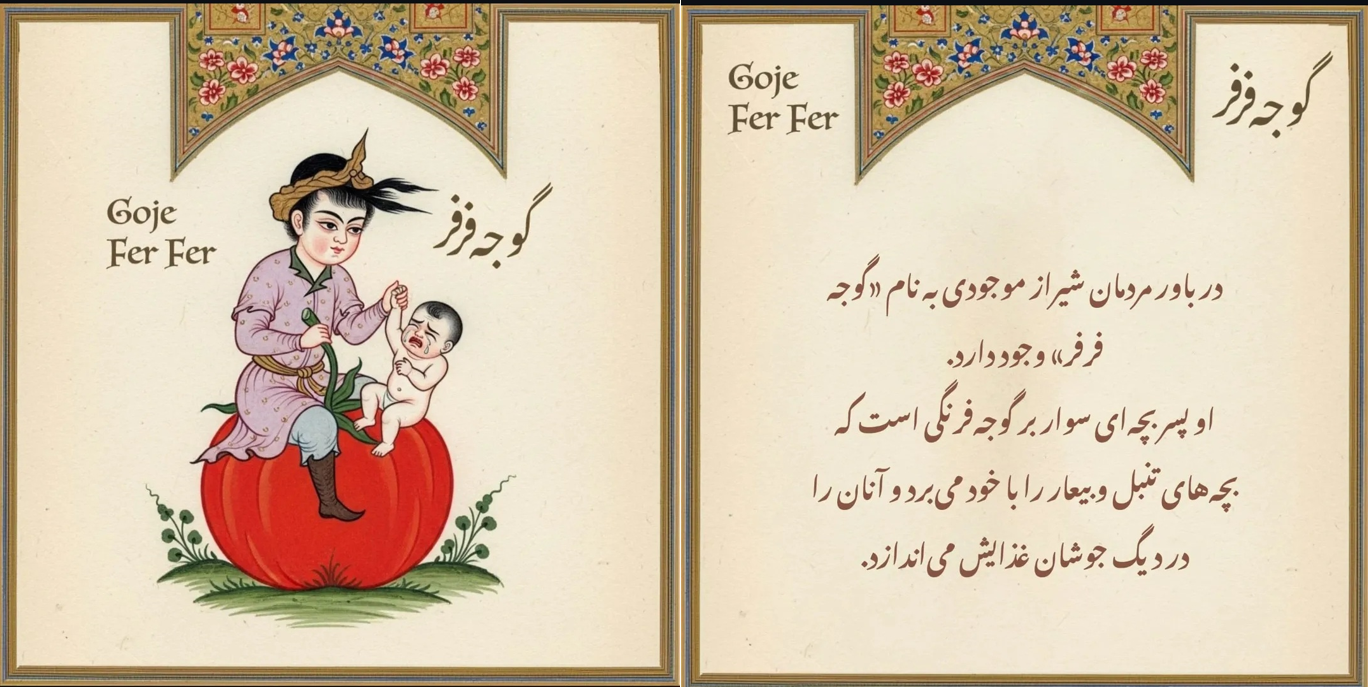 Goje
Fer Fer
گوجه فرفر
Goje
Fer Fer
گوجه فرفر
در باور مردمان شیراز موجودی به نام «گوجه
فرفر» وجود دارد.
او پسر بچه ای سوار بر گوجه فرنگی است که
بچه های تنبل و بیعار را با خود می برد و آنان را
در دیگ جوشان غذایش می اندازد.